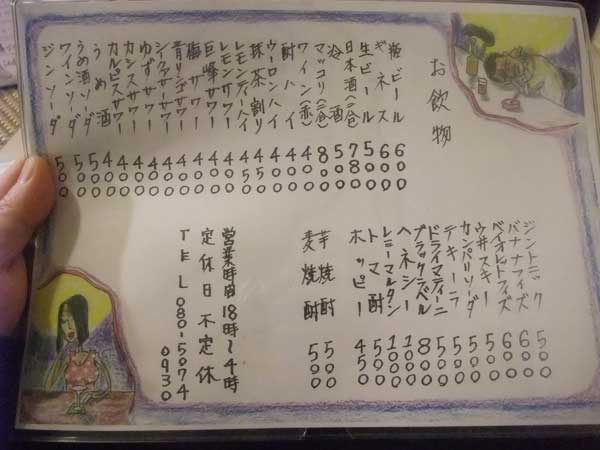 お飲物
瓶ビール 600
ギネス 600
生ビール 500
日本酒(一合) 780
冷酒 500
マッコリ(一合) 800
ワイン(赤) 400
酎ハイ 400
ウーロンハイ 400
抹茶割り 450
レモンティーハイ 450
レモンサワー 400
巨峰サワー 400
梅サワー 400
青リンゴサワー 400
シークァーサワー 400
ゆずサワー 400
カシスサワー 400
カルピスサワー 400
うめ酒 500
うめ酒ソーダ 500
ワインソーダ 500
ジンソーダ 500
ジントニック 500
バナナフィズ 600
バイオレットフィズ 600
ウヰスキー 500
カンパリソーダ 500
テキーラ 500
ドライマティーニ 500
ブラックラベル 800
ヘネシー 1000
レミーマルタン 1000
トマト酎 500
ホッピー 450
芋焼酎 500
麦焼酎 500
営業時間18時〜4時
定休日不定休
TEL080-5074
0930